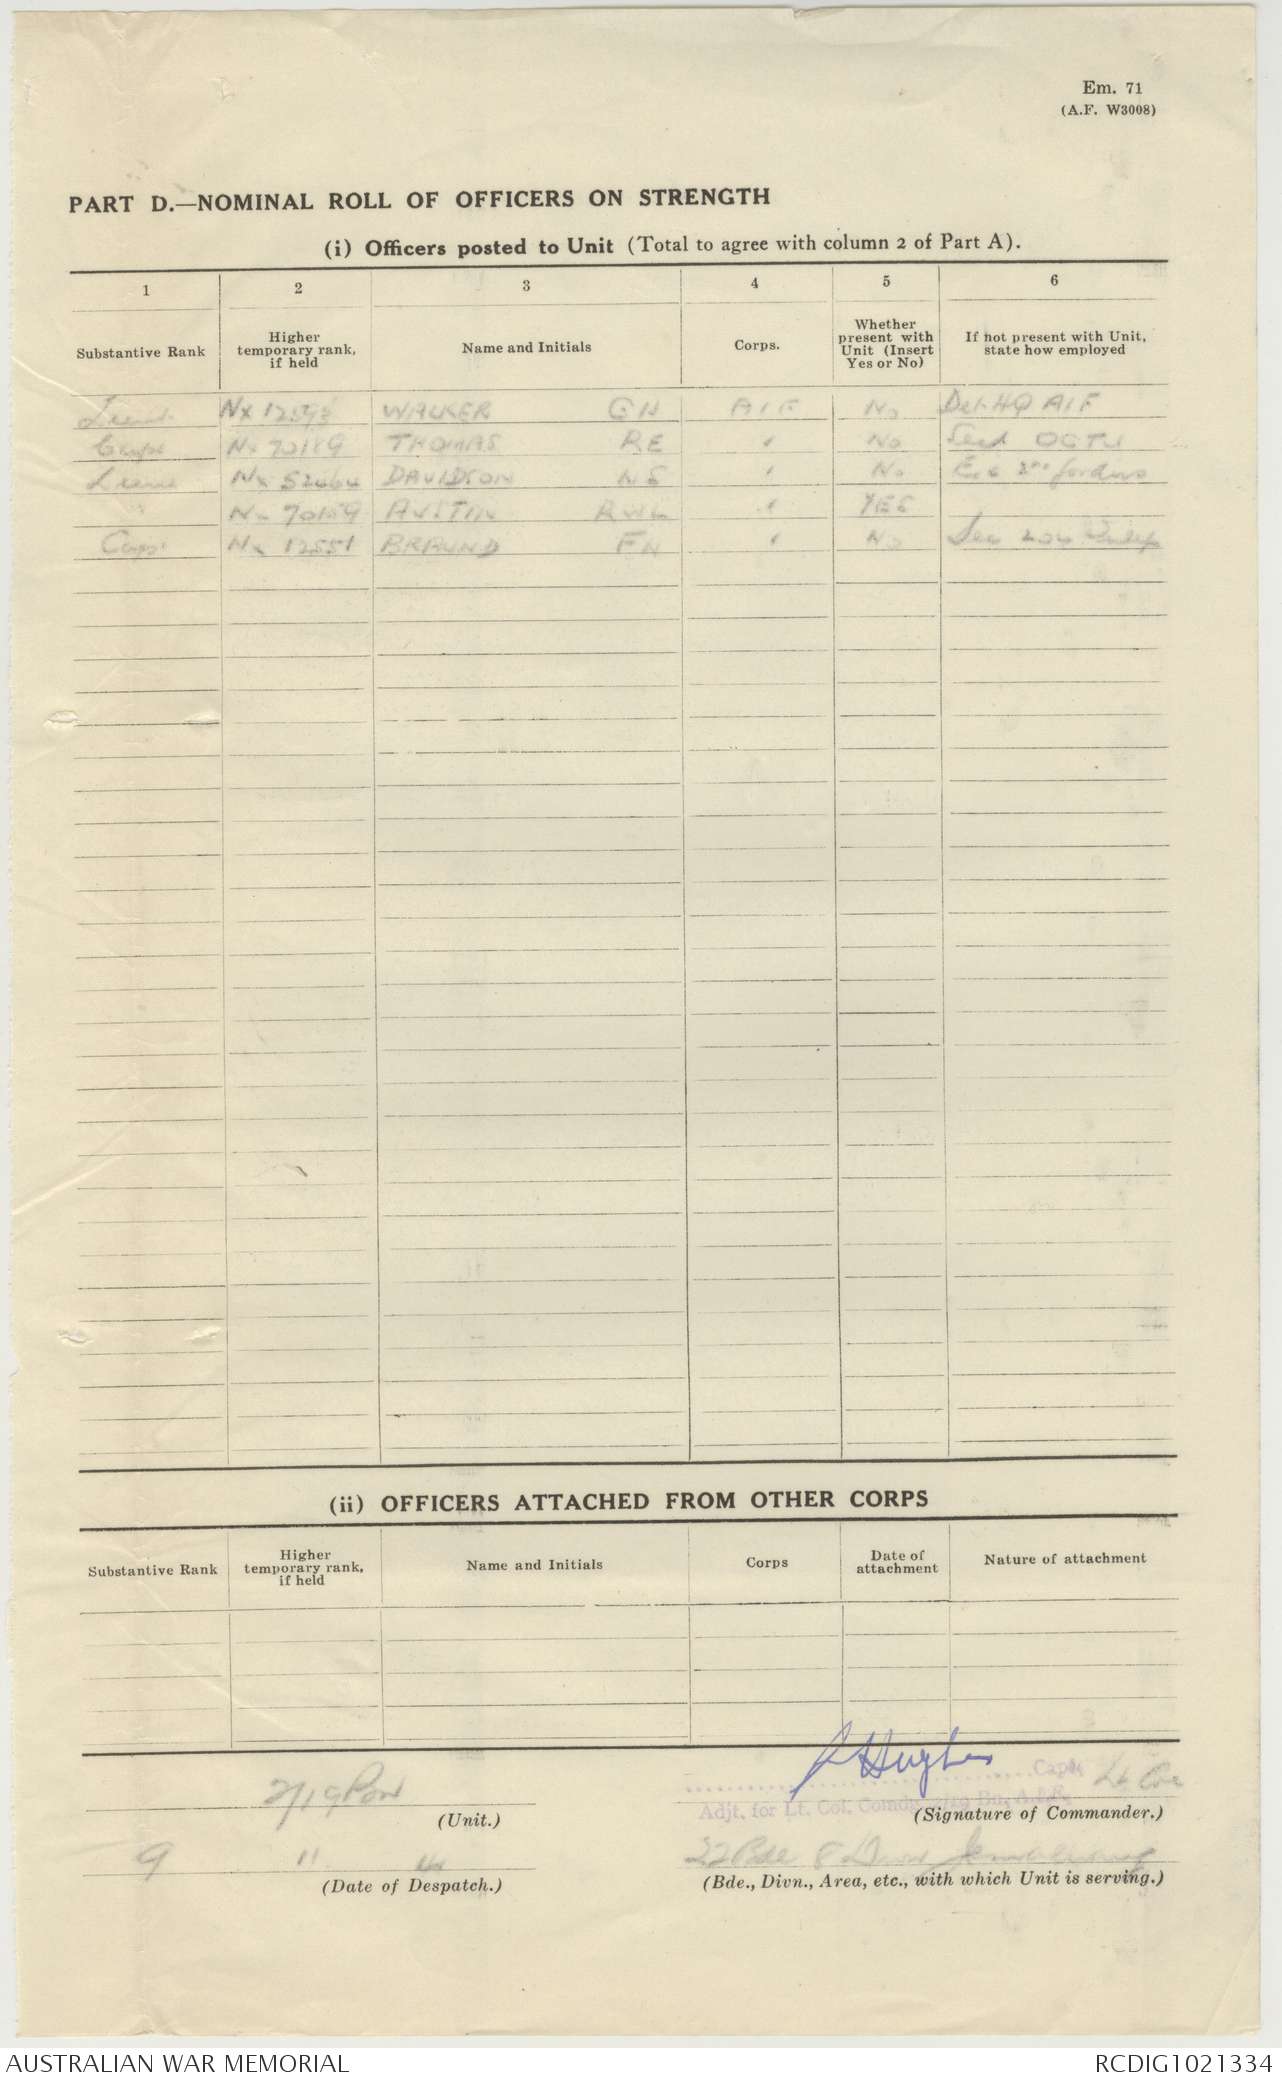 Em. 71
(A.F. W3008)
PART D.—NOMINAL ROLL OF OFFICERS ON STRENGTH
(i) Officers posted to Unit (Total to agree with column 2 of Part A).
1 2 3 4 5 6
Substantive Rank
Higher temporary rank, if held
Name and Initials
Corps.
Whether present with Unit (Insert Yes or No)
If not present with Unit, state how employed
Lieut NX 12593 WALKER GH AIF No Det. HQ AIF
Capt NX 70189 THOMAS RE " No OCTU
Lieut NX 52464 DAVIDSON NS " No
NX 70159 AUSTIN RWL " YES
Capt NX 12551 BRAUND FN " No
(ii) OFFICERS ATTACHED FROM OTHER CORPS
Substantive Rank
Higher temporary rank, if held
Name and Initials
Corps
Date of attachment
Nature of attachment
2/19 Bn
(Unit.)
Hughes Capt. Lt Col
Adjt. for Lt. Col. Comdg. 2/19 Bn. A.I.F.
(Signature of Commander.)
9 11
(Date of Despatch.)
22 Bde 8 Divn Jemaluang
(Bde., Divn., Area, etc., with which Unit is serving.)
AUSTRALIAN WAR MEMORIAL
RCDIG1021334